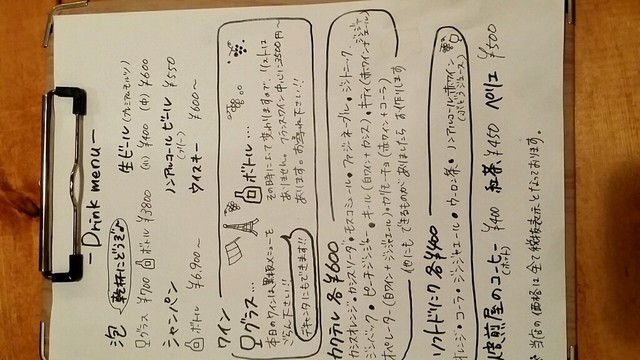 -Drink menu-
泡 乾杯にどうぞ♪
グラス ¥700 ボトル ¥3800
シャンパン
ボトル ¥6,900〜
生ビール(プレミアムモルツ)
(小) ¥400 (中) ¥600
ノンアルコールビール ¥550
(フリー)
ウィスキー ¥600〜
ワイン
グラス...
本日のワインは黒板メニューを
ごらん下さい!!
デキャンタにもできます!!
ボトル...
その時によって変わりますので、リストは
ありません。フランスワイン中心に3500円〜
あります。お尋ね下さい!!
カクテル 各¥600
カシスオレンジ・カシスソーダ・モスコミュール・ファジーネーブル・ジントニック
ジンバック・ピーチジンジャー・キール(白ワイン+カシス)・キティ(赤ワイン+ジンジャエール)
オペレーター(白ワイン+ジンジャエール)・カリモーチョ(赤ワイン+コーラ)
他にもできるものがありましたらお作りします
ソフトドリンク 各¥400
オレンジ・コーラ・ジンジャエール・ウーロン茶・ノンアルコール赤ワイン
(ぶどうジュース)
焙煎屋のコーヒー ¥400 紅茶 ¥450 ペリエ ¥500
(ポット)
当店の価格は全て税抜表示となっております。